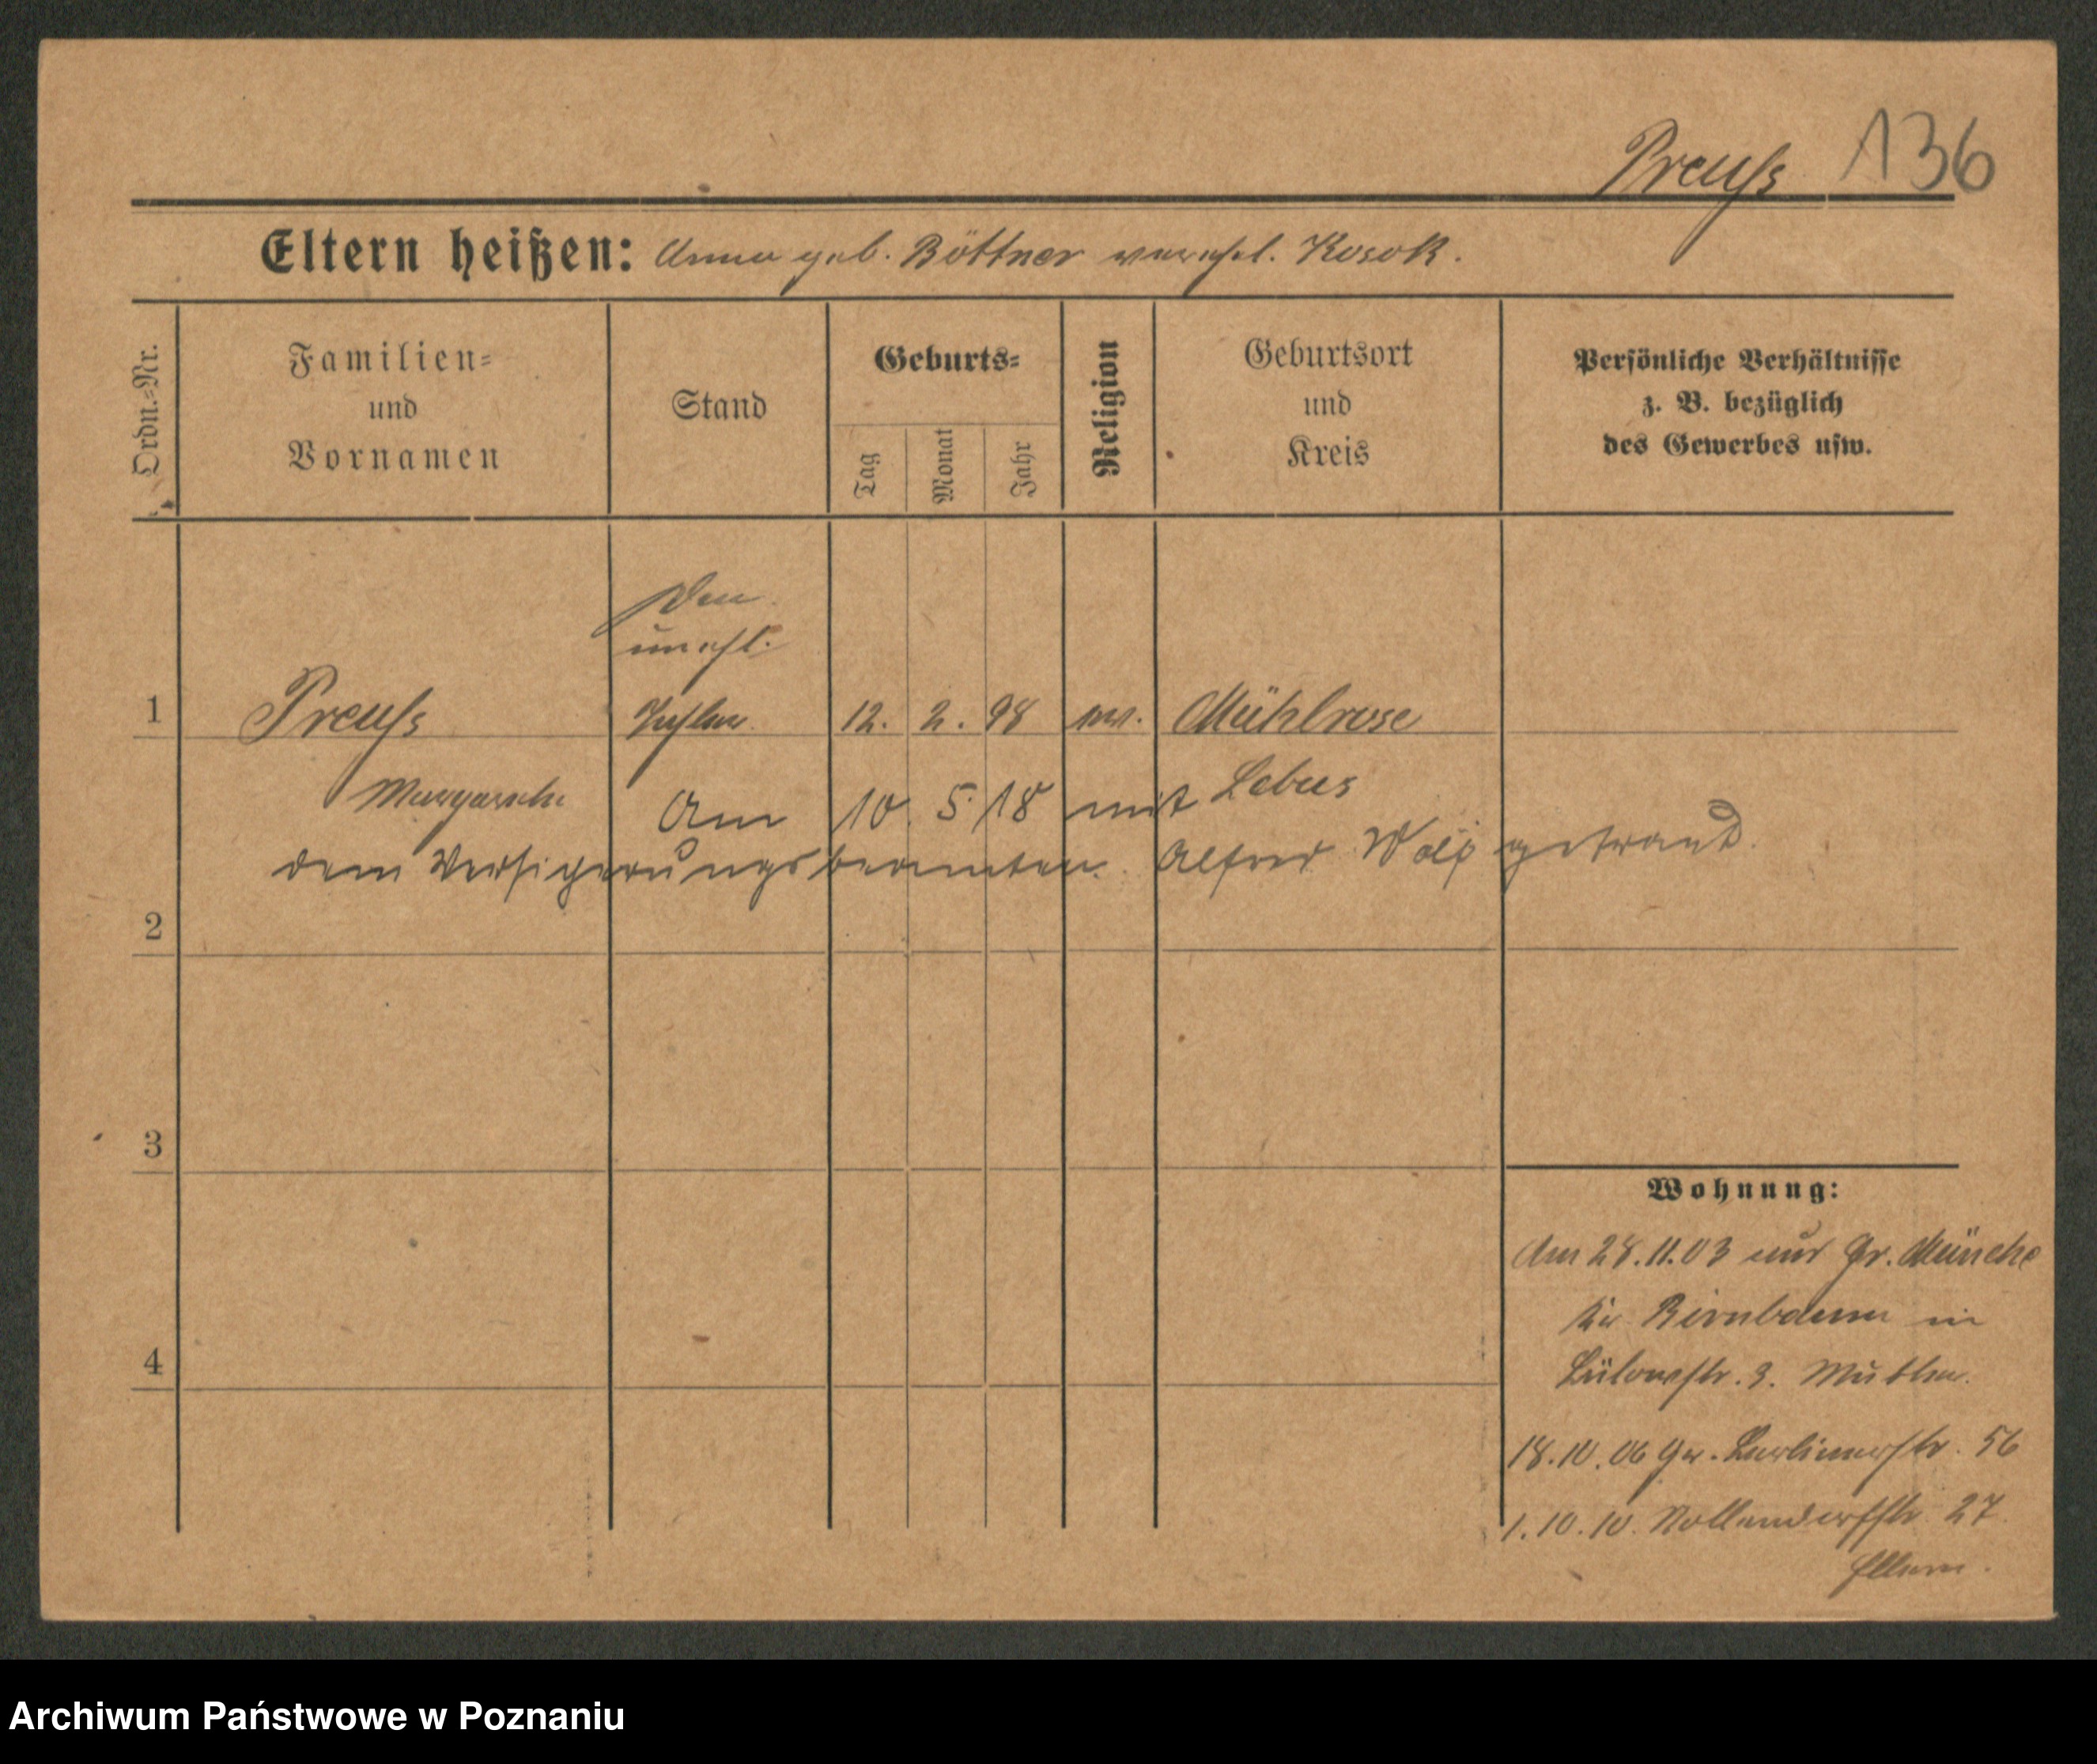 Preuß 136
Eltern heißen: Anna geb. Böttner verehel. Kosok.
Ordn.-Nr.
Familien-
und
Vornamen
Stand
Geburts-
Tag
Monat
Jahr
Religion
Geburtsort
und
Kreis
Persönliche Verhältnisse
z. B. bezüglich
des Gewerbes usw.
unehl.
1 Preuß 12. 2. 98 ev. Mühlrose
Margarethe Lebus
Am 10. 5. 18 mit
dem Versicherungsbeamten Alfred getraud.
2
3
4
Wohnung:
Am 28.11.03 aus Gr. Münche
Kr Birnbaum in
Bülowstr. 3. Mutter.
18.10.06 Gr. Berlinerstr. 56
1.10.10. Nollendorfstr 27
Eltern.
Archiwum Państwowe w Poznaniu